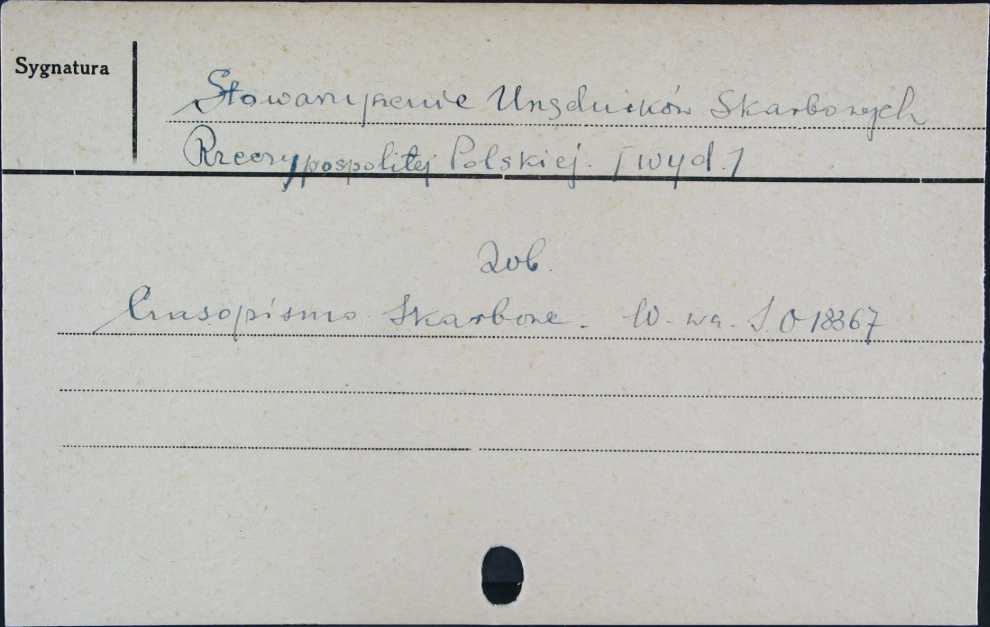 Sygnatura
Stowarzyszenie Urzędników Skarbowych
Rzeczypospolitej Polskiej. [wyd.]
Zob.
Czasopismo Skarbowe. W-wa. S. O 18367